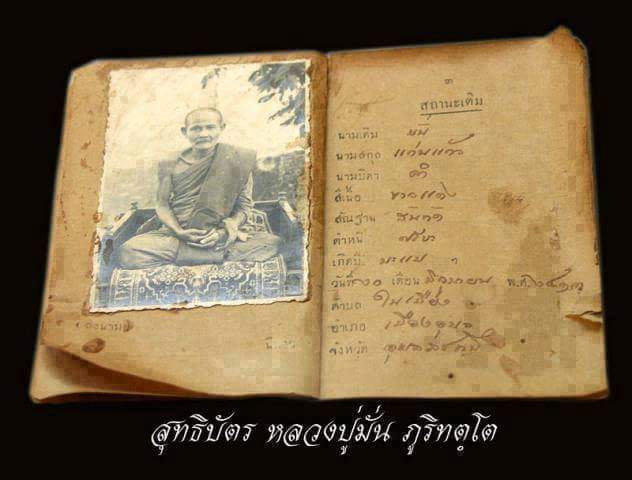 ๓
สถานะเดิม
นามเดิม มั่น
นามสกุล แก่นแก้ว
นามบิดา คำ
สีเนื้อ ขาวแดง
สัณฐาน สันทัด
ตำหนิ
เกิดปี มะแม
วันที่ เดือน พ.ศ.
ตำบล ในเมือง
อำเภอ เมืองอุบล
จังหวัด อุบลราชธานี
สุทธิบัตร หลวงปู่มั่น ภูริทตฺโต